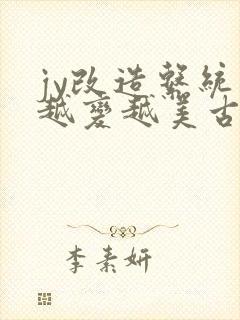 jy改造系統
越變越美古
李素妍